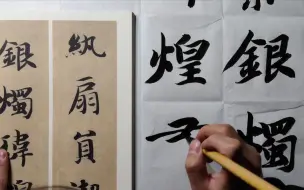 紈扇員潔
銀燭煒
銀燭
煌